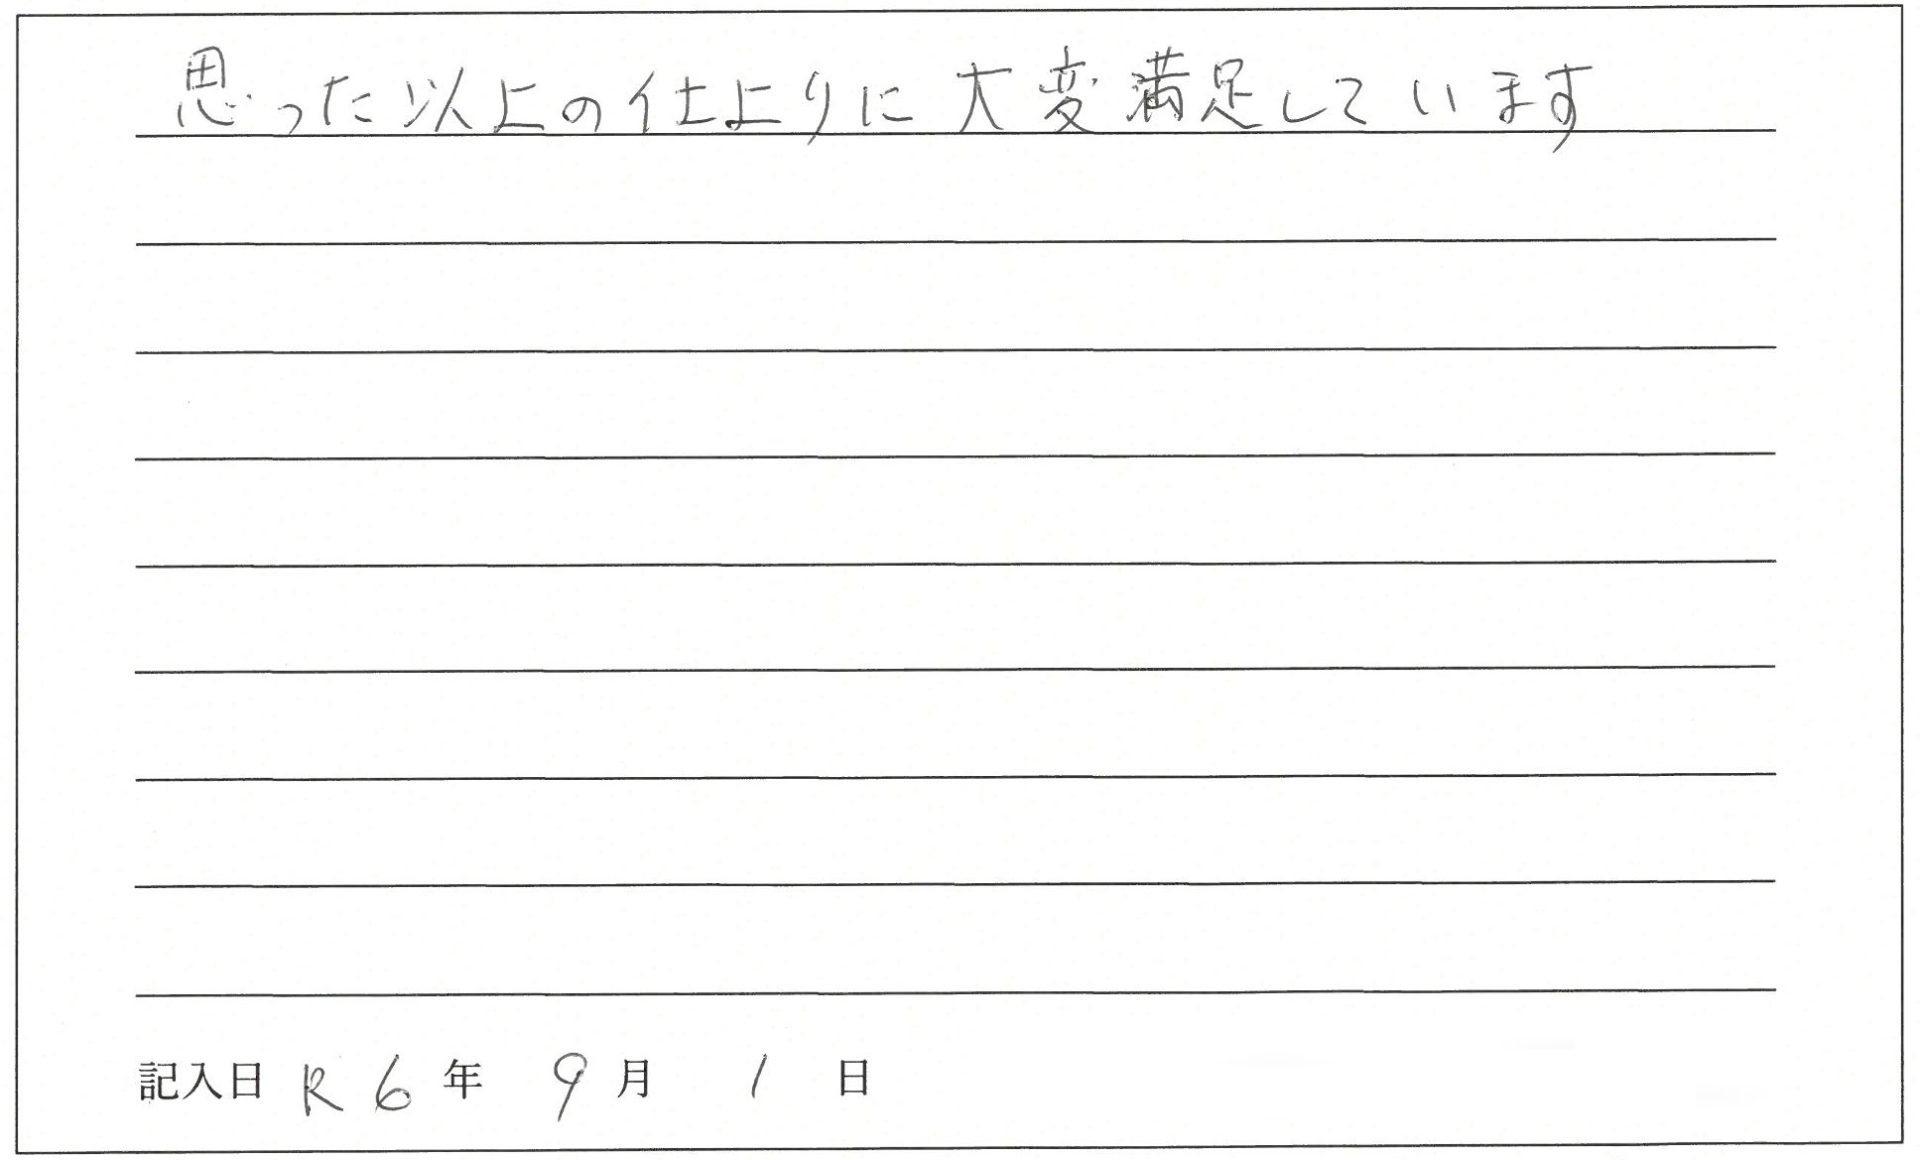 思った以上の仕上りに大変満足しています
記入日 R6年 9月 1日